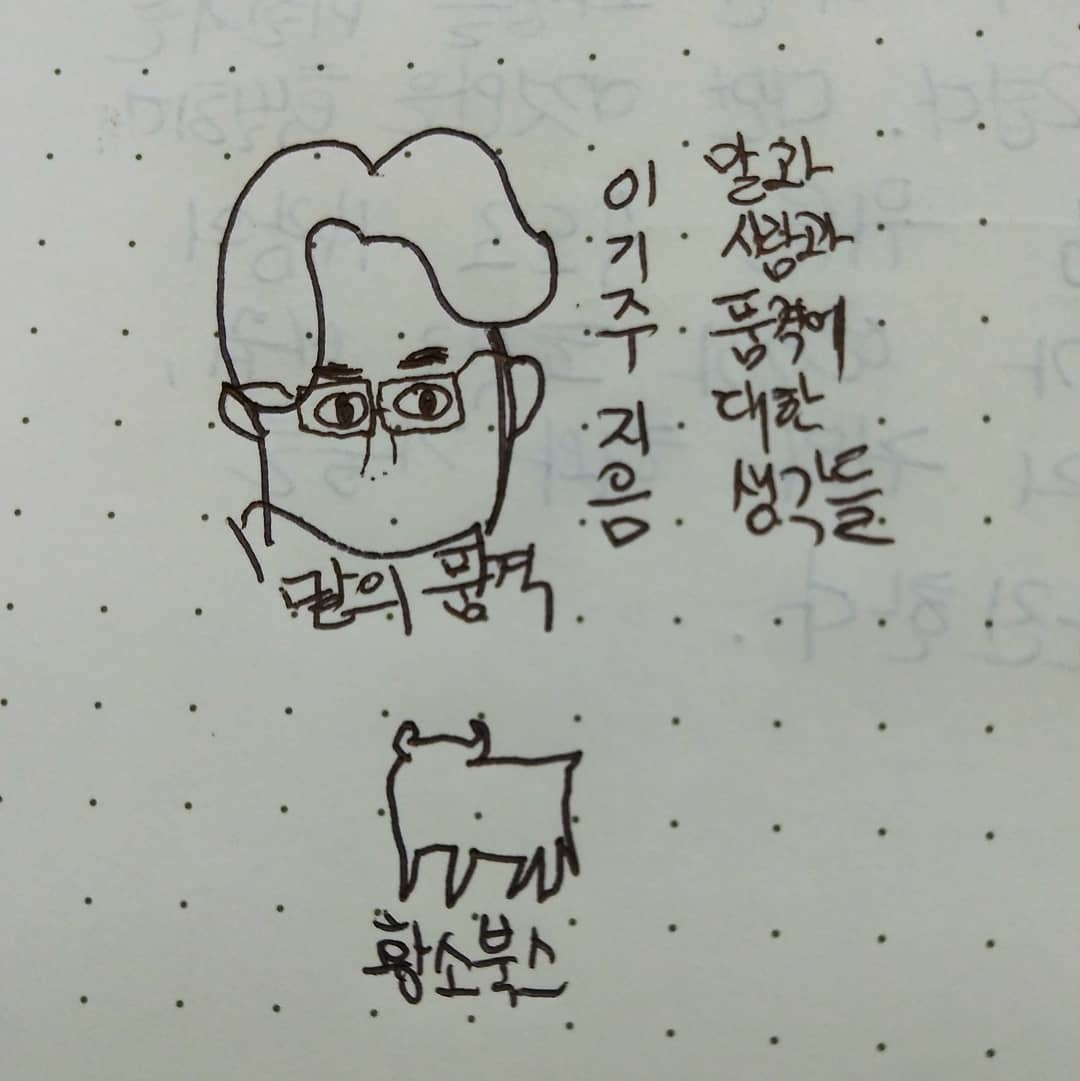 이기주 지음
말과
사람과
품격에
대한
생각들
말의 품격
황소북스